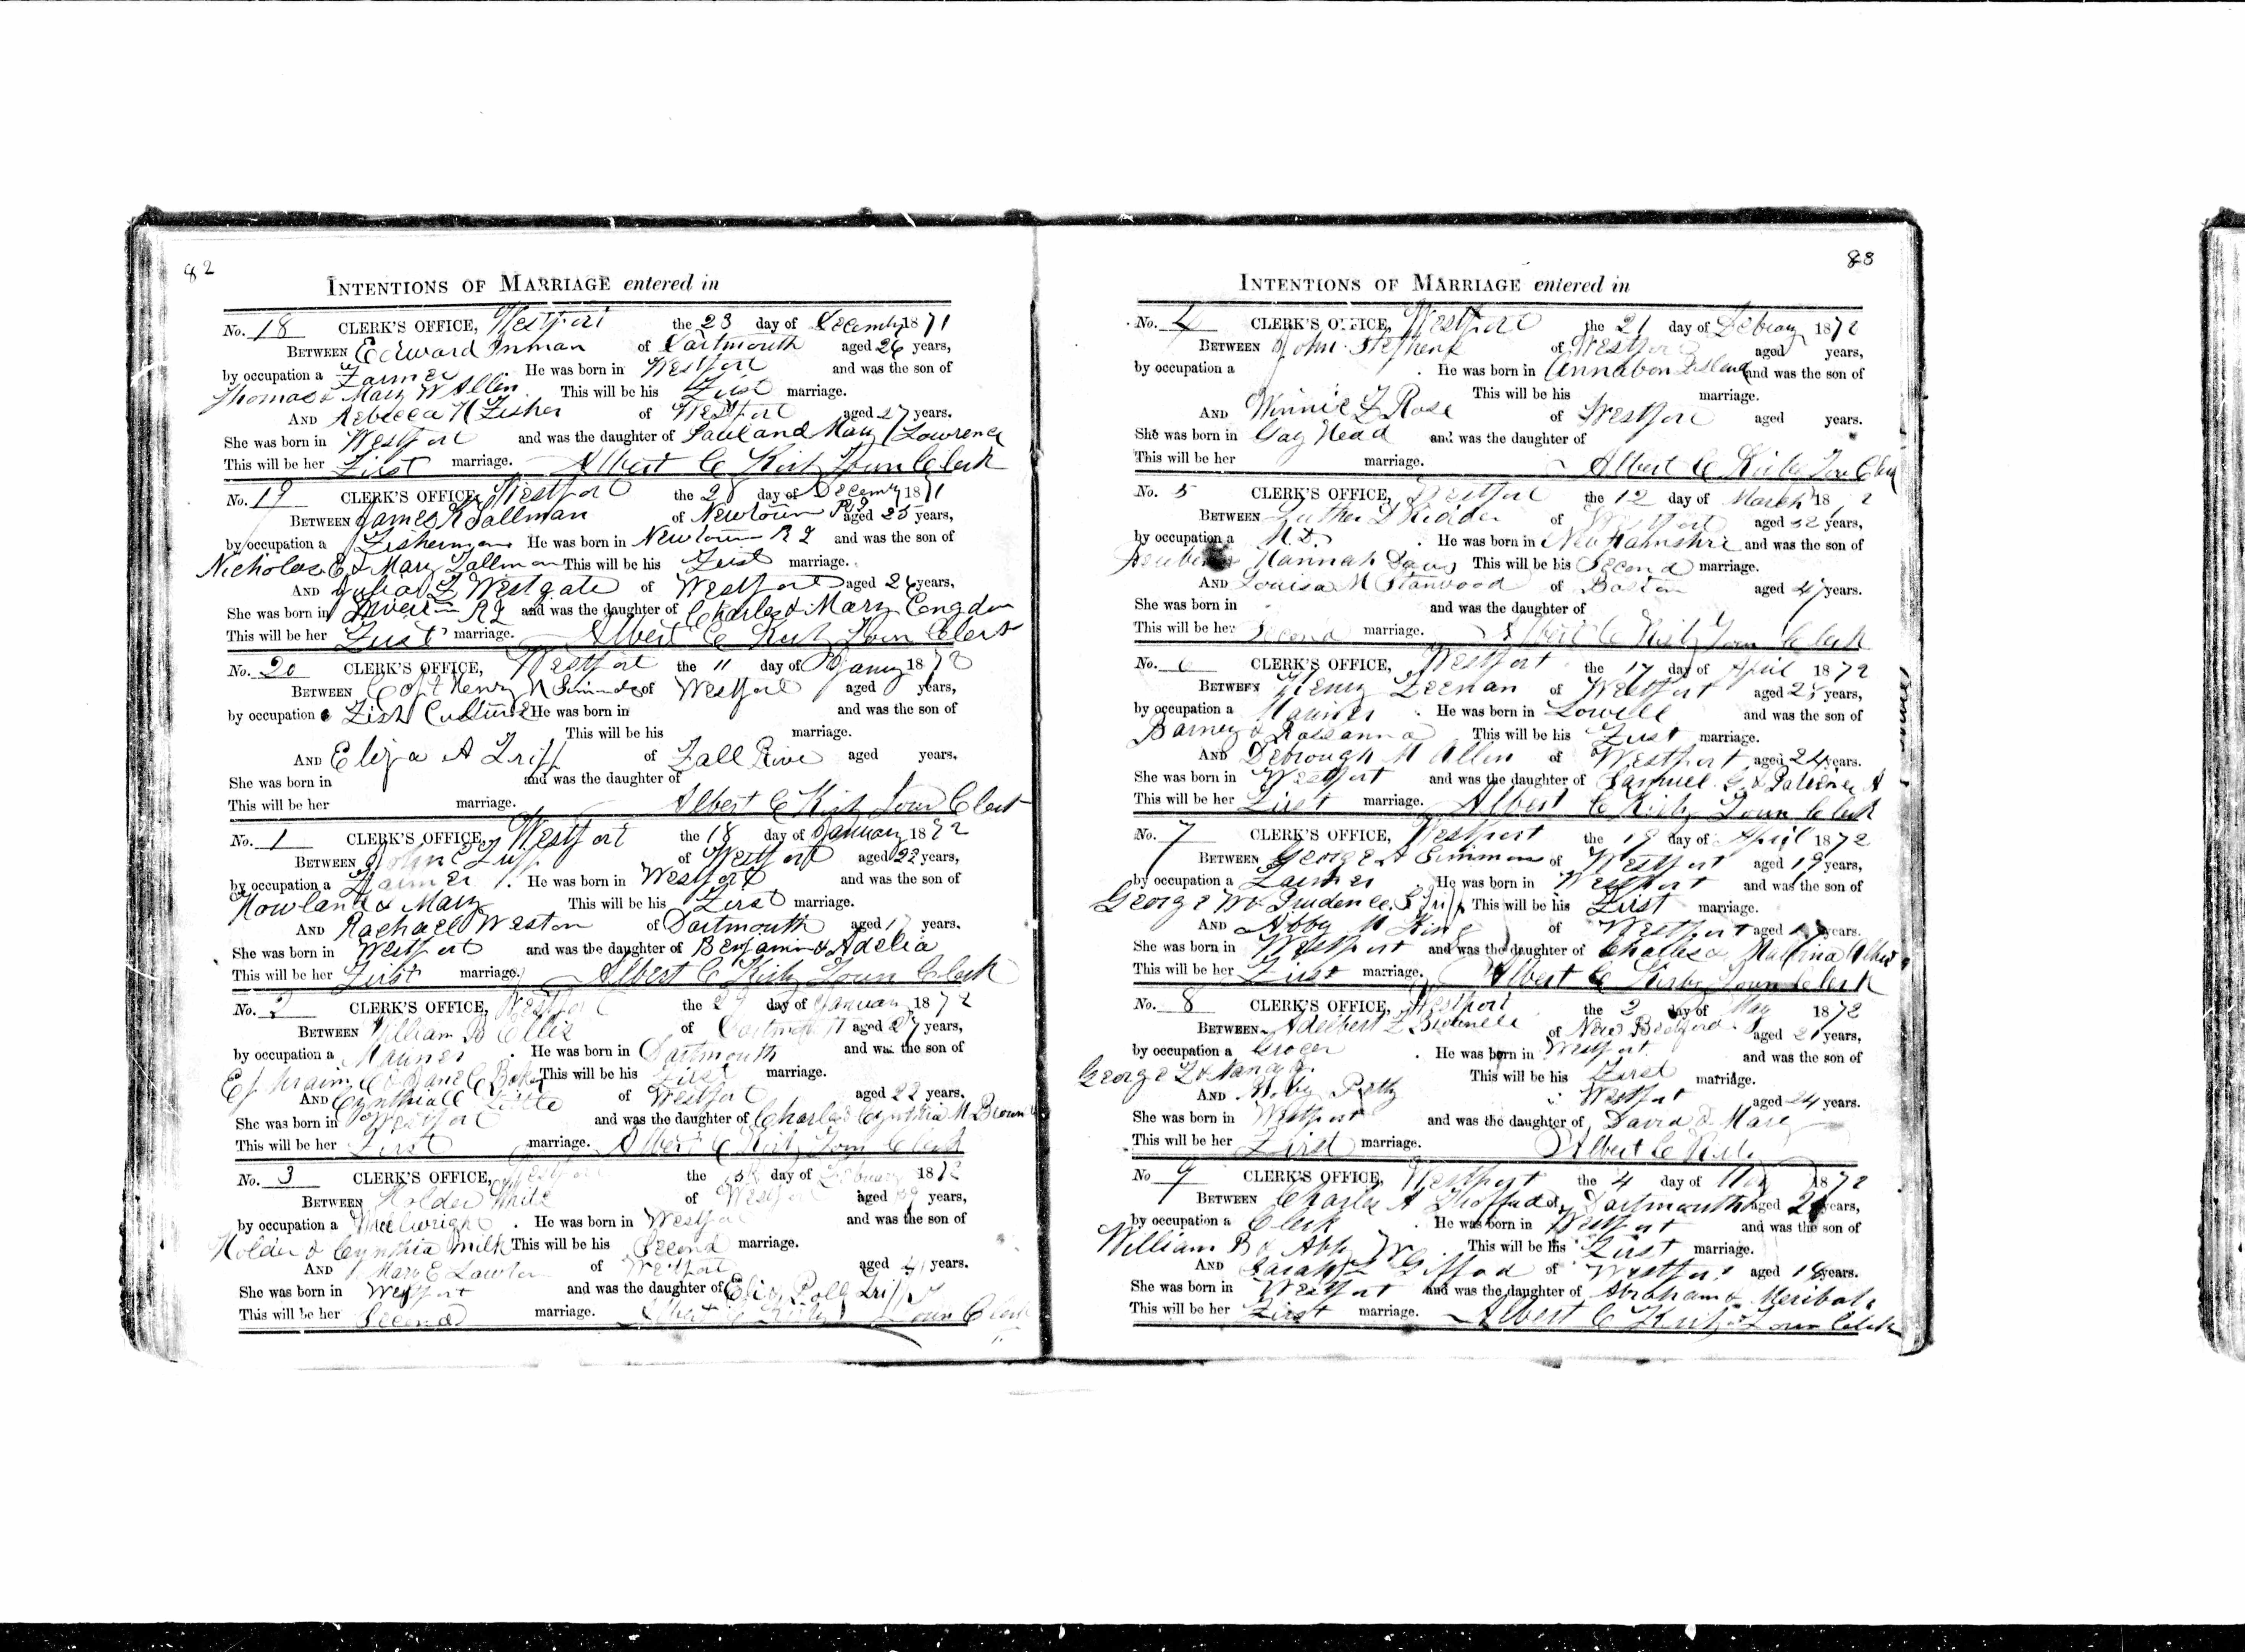 82
INTENTIONS OF MARRIAGE entered in
No. 18 CLERK'S OFFICE, Westport the 23 day of December 1871
BETWEEN Edward Inman of Dartmouth aged 26 years,
by occupation a Farmer He was born in Westport and was the son of
Thomas & Mary W Allen This will be his First marriage.
AND Rebecca H Fisher of Westport aged 27 years.
She was born in Westport and was the daughter of Paul and Mary Lawrence
This will be her First marriage. Albert C Kirby Town Clerk
No. 19 CLERK'S OFFICE, Westport the 28 day of Decemby 1871
BETWEEN James R Tallman of Newtown RI aged 25 years,
by occupation a Fisherman He was born in Newtown R I and was the son of
Nicholas E & Mary Tallman This will be his First marriage.
AND Julia F Westgate of Westport aged 26 years,
She was born in R I and was the daughter of Charles & Mary Congdon
This will be her First marriage. Albert C Kirby Town Clerk
No. 20 CLERK'S OFFICE, Westport the 11 day of Janury 1872
BETWEEN Capt Henry N Simmons of Westport aged years,
by occupation a Fish He was born in and was the son of
This will be his marriage.
AND Eliza A Tripp of Fall River aged years.
She was born in and was the daughter of
This will be her marriage. Albert C Kirby Town Clerk
No. 1 CLERK'S OFFICE, Westport the 18 day of January 1872
BETWEEN John E of Westport aged 22 years,
by occupation a Farmer. He was born in Westport and was the son of
Howland & Mary This will be his First marriage.
AND Rachael Weston of Dartmouth aged 17 years.
She was born in Westport and was the daughter of Benjamin & Adelia
This will be her First marriage. Albert C Kirby Town Clerk
No. 2 CLERK'S OFFICE, Westport the day of January 1872
BETWEEN William B Ellis of Dartmouth aged 27 years,
by occupation a Mariner. He was born in Dartmouth and was the son of
Ephraim C & Jane C Baker This will be his First marriage.
AND Cynthia C of Westport aged 22 years.
She was born in Westport and was the daughter of Charles & Cynthia M Brown
This will be her First marriage. Albert C Kirby Town Clerk
No. 3 CLERK'S OFFICE, Westport the day of February 1872
BETWEEN Holder White of Westport aged years,
by occupation a Wheelwright. He was born in Westport and was the son of
Holder & Cynthia Milk This will be his Second marriage.
AND Mary E Lawton of Westport aged 41 years.
She was born in Westport and was the daughter of Polly Tripp
This will be her Second marriage. Albert C Kirby Town Clerk
88
INTENTIONS OF MARRIAGE entered in
No. 4 CLERK'S OFFICE, Westport the 21 day of Febrary 1872
BETWEEN John Stephens of Westport aged years,
by occupation a . He was born in Annabon Island and was the son of
This will be his marriage.
AND Winnie F Rose of Westport aged years.
She was born in Gay Head and was the daughter of
This will be her marriage. Albert C Kirby Town Clerk
No. 5 CLERK'S OFFICE, Westport the 12 day of March 18 2
BETWEEN Luther D Kidder of Westport aged 52 years,
by occupation a M.D. . He was born in New Hamshire and was the son of
Hannah Davis This will be his Second marriage.
AND Louisa M Stanwood of Boston aged years.
She was born in and was the daughter of
This will be her Second marriage. Albert C Kirby Town Clerk
No. 6 CLERK'S OFFICE, Westport the 17 day of April 1872
BETWEEN Henry Feenan of Westport aged years,
by occupation a Mariner . He was born in Lowell and was the son of
Barney & Rossanna This will be his First marriage.
AND Debrough M Allen of Westport aged 24 years.
She was born in Westport and was the daughter of Samuel G. &
This will be her First marriage. Albert C Kirby Town Clerk
No. 7 CLERK'S OFFICE, Westport the 19 day of April 1872
BETWEEN George A Simmon of Westport aged 19 years,
by occupation a Farmer He was born in Westport and was the son of
George W & Prudence S Tripp This will be his First marriage.
AND Abby M King of Westport aged years.
She was born in Westport and was the daughter of Charles &
This will be her First marriage. Albert C Kirby Town Clerk
No. 8 CLERK'S OFFICE, Westport the 2 day of May 1872
BETWEEN Adelbert F Brownell of New Bedford aged 21 years,
by occupation a Grocer . He was born in Westport and was the son of
George L & This will be his First marriage.
AND Petty Westport aged 24 years.
She was born in Westport and was the daughter of David & Mary
This will be her First marriage. Albert C Kirby
No 9 CLERK'S OFFICE, Westport the 4 day of May 1872
BETWEEN Charles A of Dartmouth aged years,
by occupation a Clerk . He was born in Westport and was the son of
William B & Abby W. This will be his First marriage.
AND Sarah L Giffod of Westport aged 18 years.
She was born in Westport and was the daughter of Abraham & Meribah
This will be her First marriage. Albert C Kirby Town Clerk